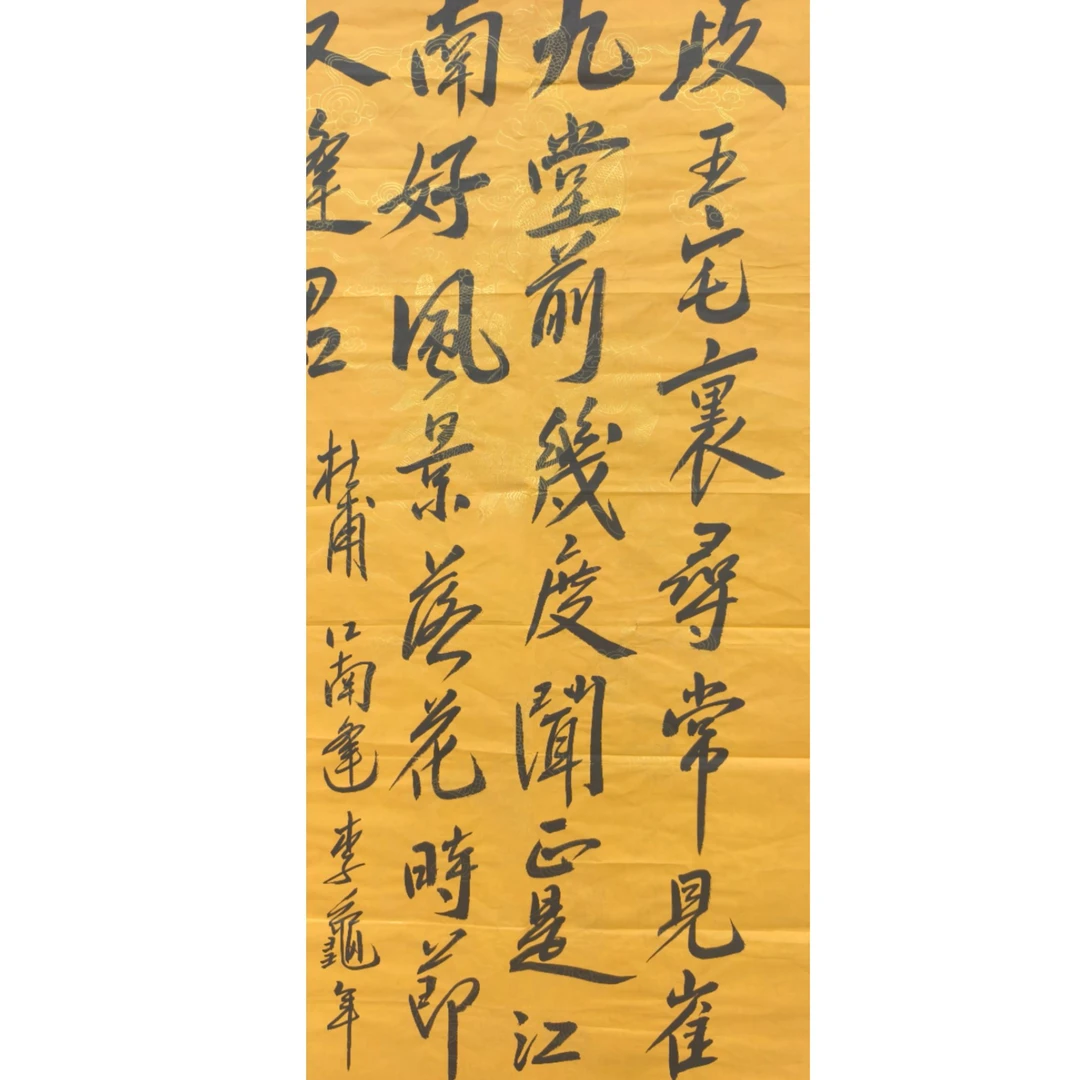 歧王宅裏尋常見崔
九堂前幾度聞正是江
南好風景落花時節
又逢君 杜甫 江南逢李龜年